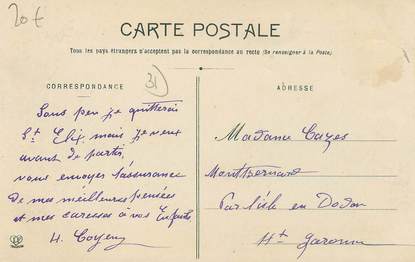 20 €
CARTE POSTALE
Tous les pays étrangers n'acceptent pas la correspondance au recto (Se renseigner à la Poste).
31
CORRESPONDANCE
ADRESSE
Sous peu je quitterai
St Elix, mais je veux
avant de partir,
vous envoyer l'assurance
de mes meilleures pensées
et mes caresses à vos Enfants
H.
Madame Cazes
Montbernard
Par l'isle en Dodon
Hte Garonne